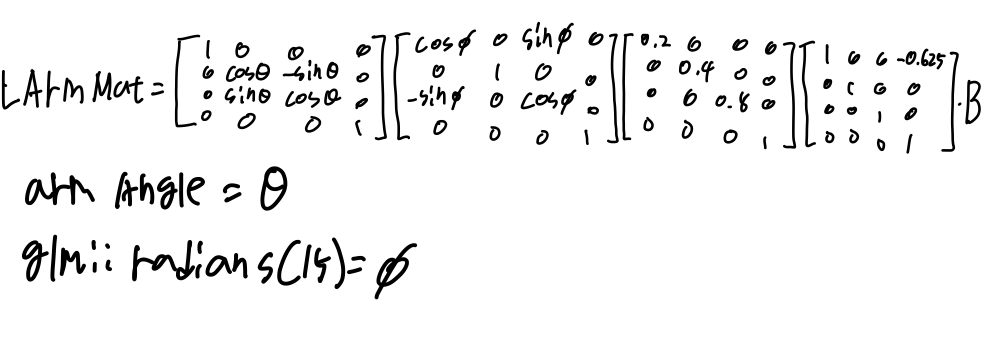 LArmMat = [1 0 0 0; 0 cosθ -sinθ 0; 0 sinθ cosθ 0; 0 0 0 1] [cosϕ 0 sinϕ 0; 0 1 0 0; -sinϕ 0 cosϕ 0; 0 0 0 1] [0.2 0 0 0; 0 0.4 0 0; 0 0 0.8 0; 0 0 0 1] [1 0 0 -0.625; 0 1 0 0; 0 0 1 0; 0 0 0 1] · B
arm Angle = θ
glm:: radians(15) = ϕ